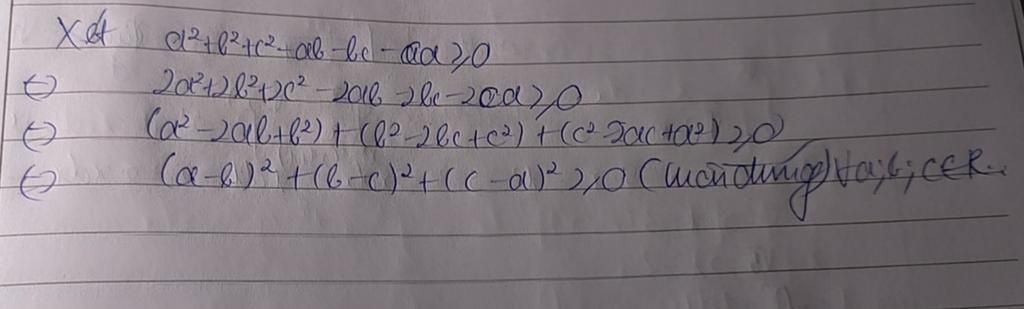 Xét a²+b²+c²-ab-bc-ca≥0
⇔ 2a²+2b²+2c²-2ab-2bc-2ca≥0
⇔ (a²-2ab+b²)+(b²-2bc+c²)+(c²-2ac+a²)≥0
⇔ (a-b)²+(b-c)²+(c-a)²≥0 (luôn đúng) ∀a;b;c∈R.